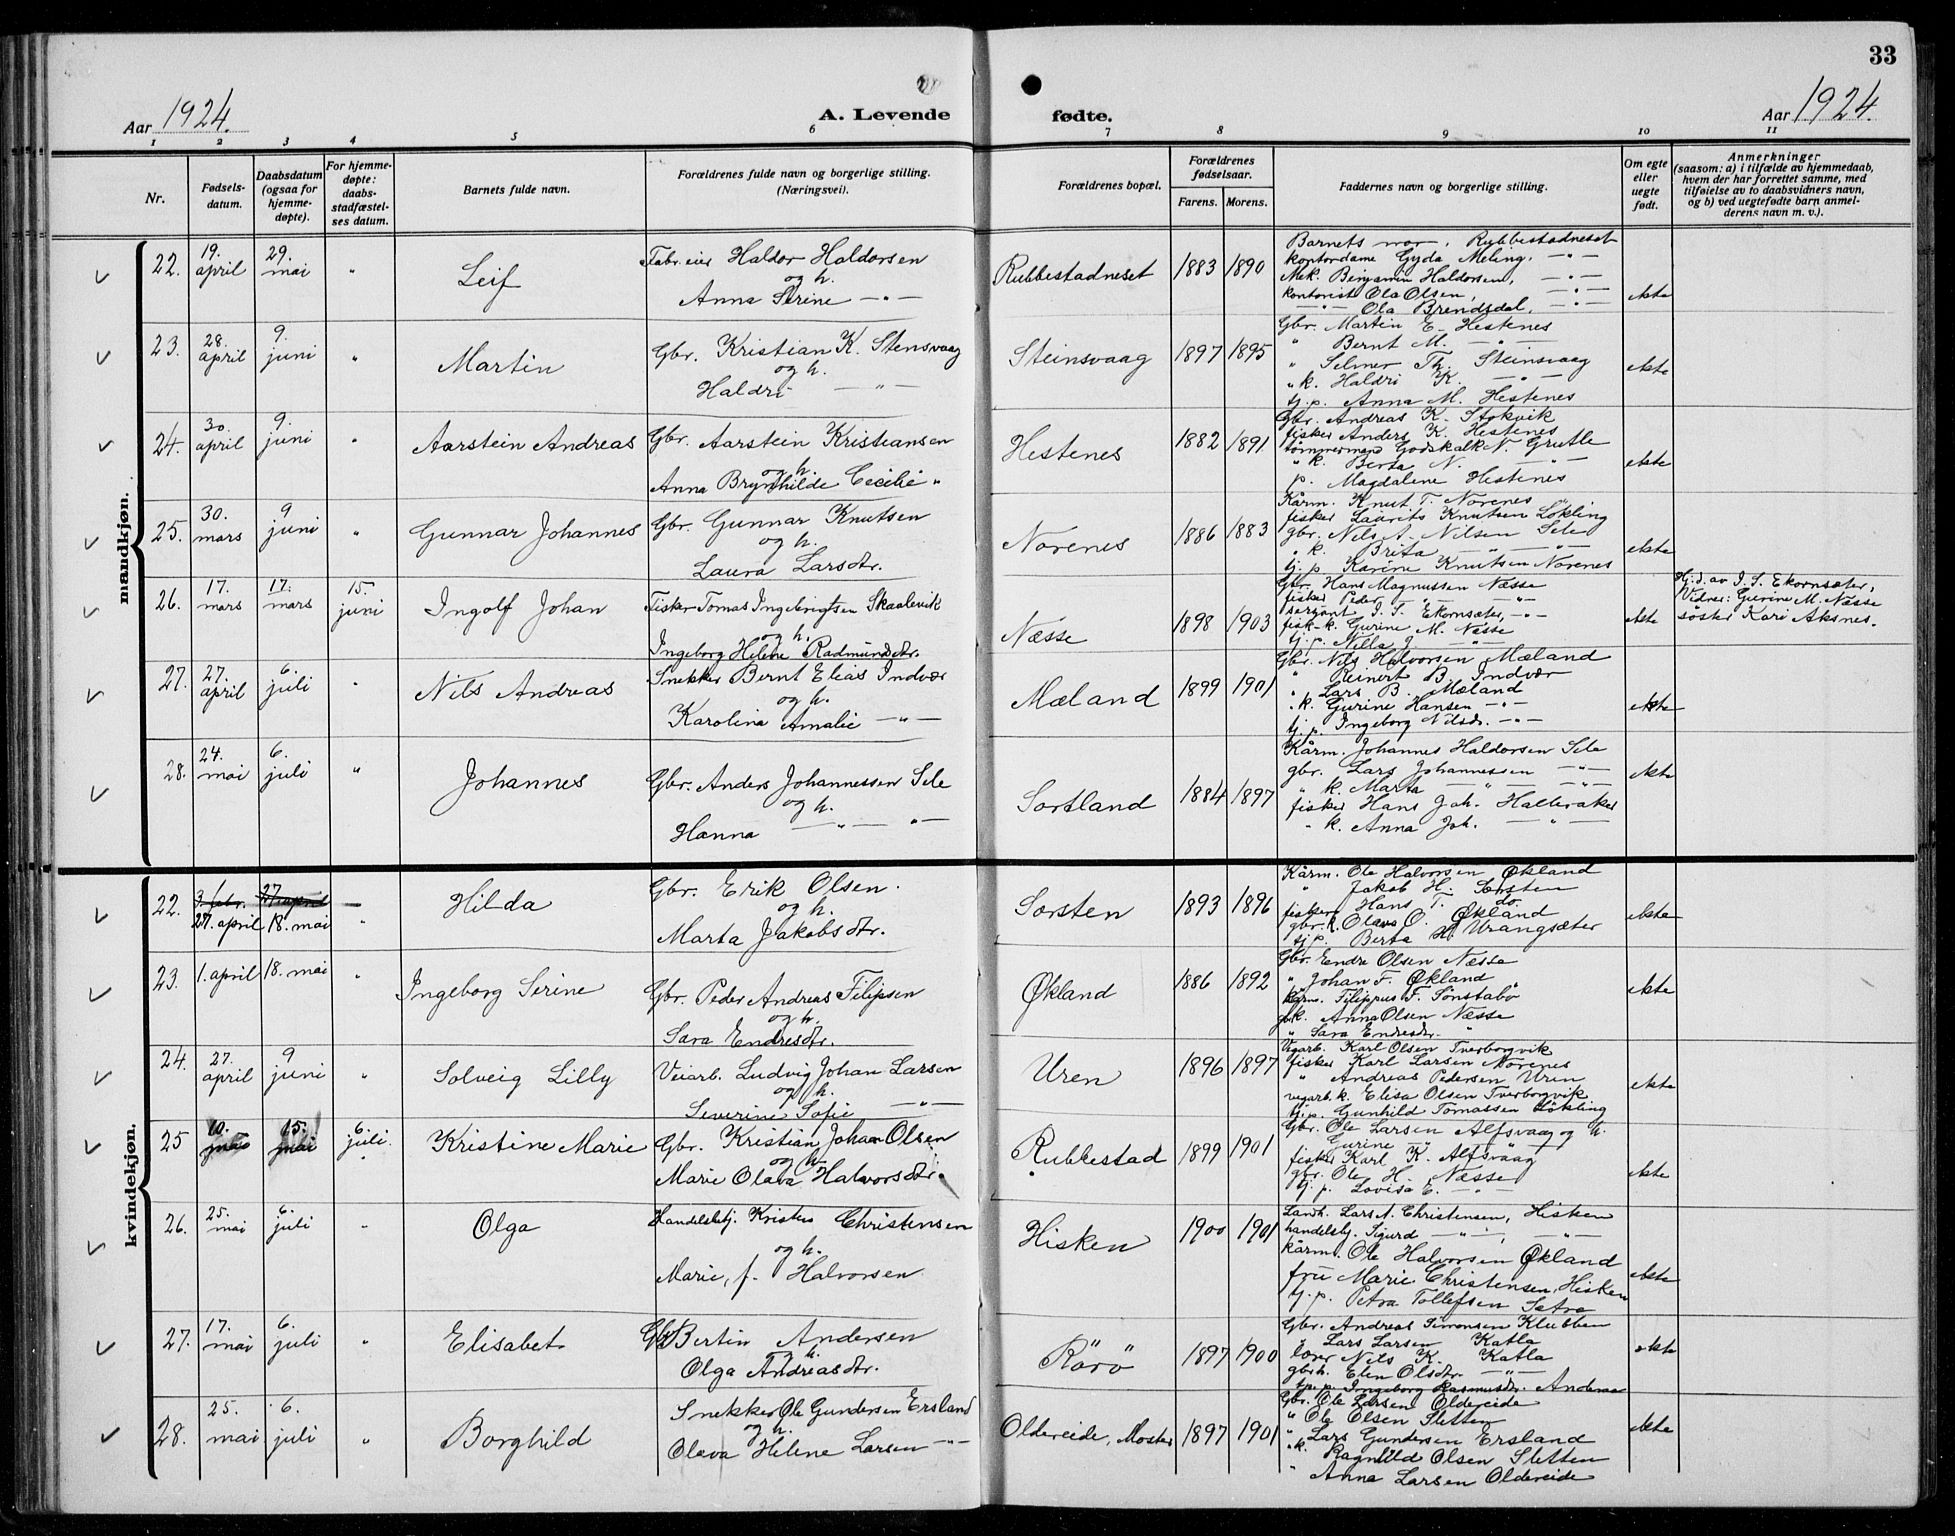 33
Aar 1924.
A. Levende fødte.
Aar 1924.
1 2 3 4 5 6 7 8 9 10 11
Nr.
Fødsels-
datum.
Daabsdatum
(ogsaa for
hjemme-
døpte).
For hjemme-
døpte:
daabs-
stadfæstel-
ses datum.
Barnets fulde navn.
Forældrenes fulde navn og borgerlige stilling.
(Næringsvei).
Forældrenes bopæl.
Forældrenes
fødselsaar.
Farens. Morens.
Faddernes navn og borgerlige stilling.
Om egte
eller
uegte
født.
Anmerkninger
(saasom: a) i tilfælde av hjemmedaab,
hvem der har forrettet samme, med
tilføielse av to daabsvidners navn,
og b) ved uegtefødte barn anmel-
derens navn m. v.).
mandkjøn.
22. 19. april 29. mai " Leif
Fabr.eier Haldor Haldorsen
og h.
Anna Serine — " —
Rubbestadneset 1883 1890
Barnets mor, Rubbestadneset
kontordame Gyda Meling, — " —
Mek. Benjamin Haldorsen, — " —
kontorist Ola Olsen, — " —
— " — Ola Brendsdal, — " —
ekte
23. 28. april 9. juni " Martin
Gbr. Kristian K. Stensvaag
og h.
Haldri — " —
Steinsvaag 1897 1895
Gbr. Martin E. Hestenes
" Bernt M. — " —
" Selmer Th. Steinsvaag
" k. Haldri K. — " —
tj. p. Anna M. Hestenes
ekte
24. 30. april 9. juni " Aarstein Andreas
Gbr. Aarstein Kristiansen
og h.
Anna Brynhilde Cecilie "
Hestenes 1882 1891
Gbr. Andreas K. Stokvik
fisker Anders K. Hestenes
tømmermand Godskalk N. Grutle
" k. Berta N. — " —
p. Magdalene Hestenes
ekte
25. 30. mars 9 juni " Gunnar Johannes
Gbr. Gunnar Knutsen
og h.
Laura Larsdtr.
Norenes 1886 1883
Kårm. Knut T. Norenes
fisker Laurits Knutsen Løkling
gbr. Nils A. Nilsen Sele
" k. Brita — " — — " —
tj. p. Karine Knutsen Norenes
ekte
26. 17. mars 17. mars 15. juni Ingolf Johan
Fisker Tomas Ingebrigtsen Skaalevik
og h.
Ingeborg Helene Radmundsdtr.
Næsse 1898 1903
Gbr. Hans Magnussen Næsse
fisker Peder — " — — " —
sersjant I. S. Ekornsæter, — " —
fisk-k. Gurine M. Næsse
tj. p. Nilla J. "
ekte
Hj.d. av I. S. Ekornsæter,
Vidner: Gurine M. Næsse
søster Kari Aksnes.
27. 27. april 6. juli " Nils Andreas
Snekker Bernt Elias Indvær
og h.
Karolina Amalie — " —
Mæland 1899 1901
Gbr. Nils Halvorsen Mæland
" Reinert B. Indvær
" Lars B. Mæland
" k. Gurine Hansen — " —
tj. p. Ingeborg Nilsdr. — " —
ekte
28. 24. mai 6. juli " Johannes
Gbr. Anders Johannessen Sele
og h.
Hanna — " — " —
Sortland 1884 1897
Kårm. Johannes Haldorsen Sele
gbr. Lars Johannessen — " —
" k. Marta — " — — " —
fisker Hans Joh. Halleraker
" k. Anna Joh. — " —
ekte
kvindekjøn.
22. 3. febr. 27. april —
27. april 18. mai " Hilda
Gbr. Erik Olsen.
og h.
Marta Jakobsdtr.
Sorsten 1893 1896
Kårm. Ole Halvorsen Økland
" Jakob H. Sorsten
fisker Hans T. do.
gbr. k. Olava O. Økland
tj. p. Berta H. Vrangsæter
ekte
23. 1. april 18. mai " Ingeborg Serine
Gbr. Peder Andreas Filipsen
og h.
Sara Endresdtr.
Økland 1886 1892
Gbr. Endre Olsen Næsse
" Johan F. Økland
kårm. Filippus F. Sønstabø
gbr. k. Anna Olsen Næsse
" Sara Endresdr. "
ekte
24. 27. april 9 juni " Solveig Lilly
Veiarb. Ludvig Johan Larsen
og h.
Severine Sofie — " —
Uren 1896 1897
Veiarb. Karl Olsen Tverborgvik
fisker Karl Larsen Norenes
" Andreas Pedersen Uren
vegarb. k. Elisa Olsen Tverborgvik
tj. p. Gunhild Tomassen Løkling
ekte
25 10. 15. 6. juli. Kristine Marie
Gbr. Kristian Johan Olsen
og h.
Marie Olava Halvorsdtr.
Rubbestad 1899 1901
Gbr. Ole Larsen Alfsvaag og h.
Gurine — " — "
fisker Karl K. Alfsvaag
gbr. Ole H. Næsse
tj. p. Lovisa E. — " —
ekte
26. 25. mai 6. juli " Olga
Handelsbetj. Kristen Christensen
og h.
Marie, f. Halvorsen
Hisken 1900 1901
Landh. Lars A. Christensen, Hisken
handelsbj. Sigurd — " —, — " —
kårm. Ole Halvorsen Økland
fru Marie Christensen, Hisken
tj. p. Petra Tollefsen Sætra
ekte
27. 17. mai 6. juli " Elisabet
Gbr. Bertin Andersen
og h.
Olga Andreasdtr.
Rörö 1897 1900
Gbr. Andreas Simonsen Klubben
" Lars Larsen Katla
lærer Nils K. Katla
gbr. k. Elen Olsdtr. — " —
tj. p. Ingeborg Rasmusdr. Andersen
ekte
28. 25. mai 6. juli " Borghild
Snekker Ole Gundersen Ersland
og h.
Olava Helene Larsen — " —
Oldereide, Moster 1897 1901
Gbr. Ole Larsen Oldereide
" Ole Olsen Sletten
" Lars Gundersen Ersland
" k. Ragnhild Olsen Sletten
" Anna Larsen Oldereide
ekte